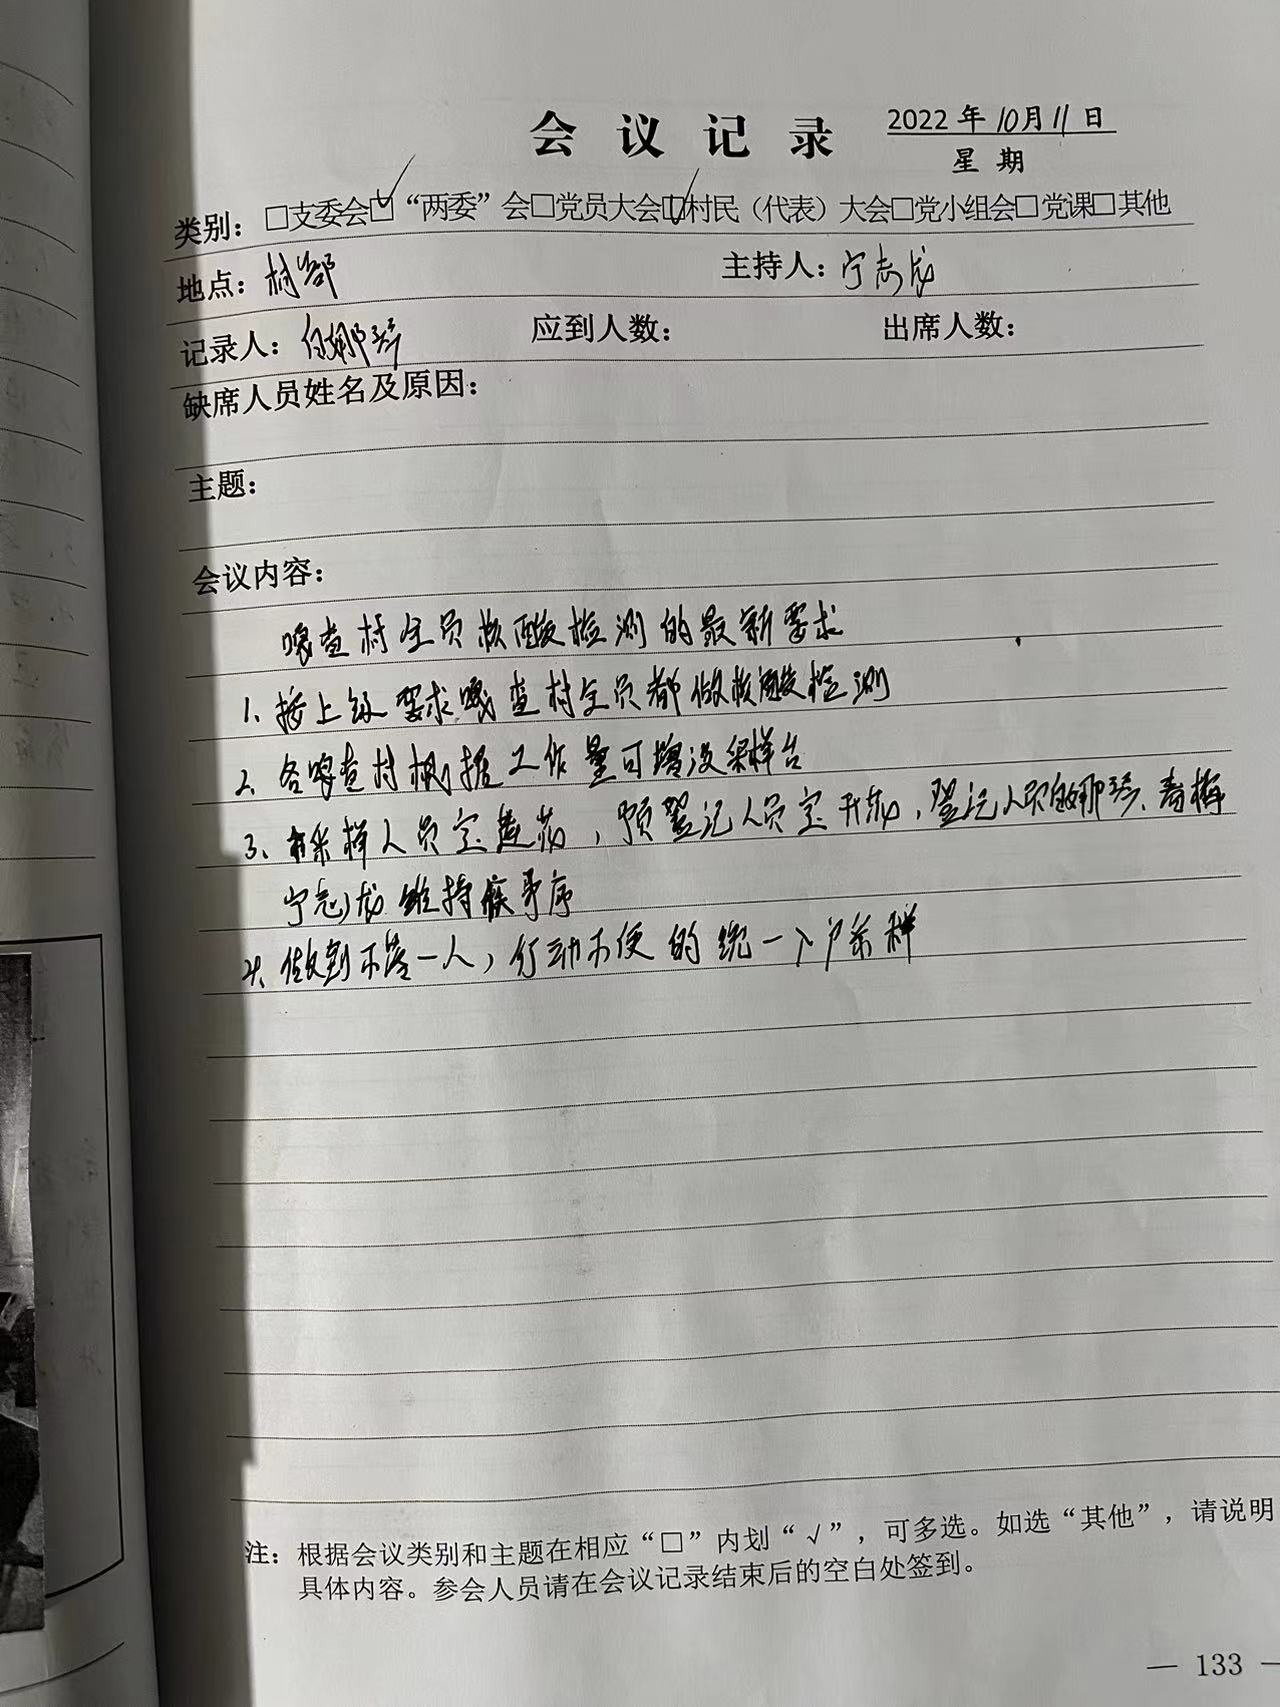 会议记录 2022年10月11日
星期
类别：□支委会☑“两委”会□党员大会☑村民（代表）大会□党小组会□党课□其他
地点：村部 主持人：宁志龙
记录人：白娜琴 应到人数： 出席人数：
缺席人员姓名及原因：
主题：
会议内容：
嘎查村全员核酸检测的最新要求
1、接上级要求嘎查村全员都做核酸检测
2、各嘎查村根据工作量可增设采样台
3、采样人员宝莲花，预登记人员宝开花，登记人员白娜琴、春梅
宁志龙维持秩序
4、做到不落一人，行动不便的统一入户采样
注：根据会议类别和主题在相应“□”内划“√”，可多选。如选“其他”，请说明
具体内容。参会人员请在会议记录结束后的空白处签到。
— 133 —